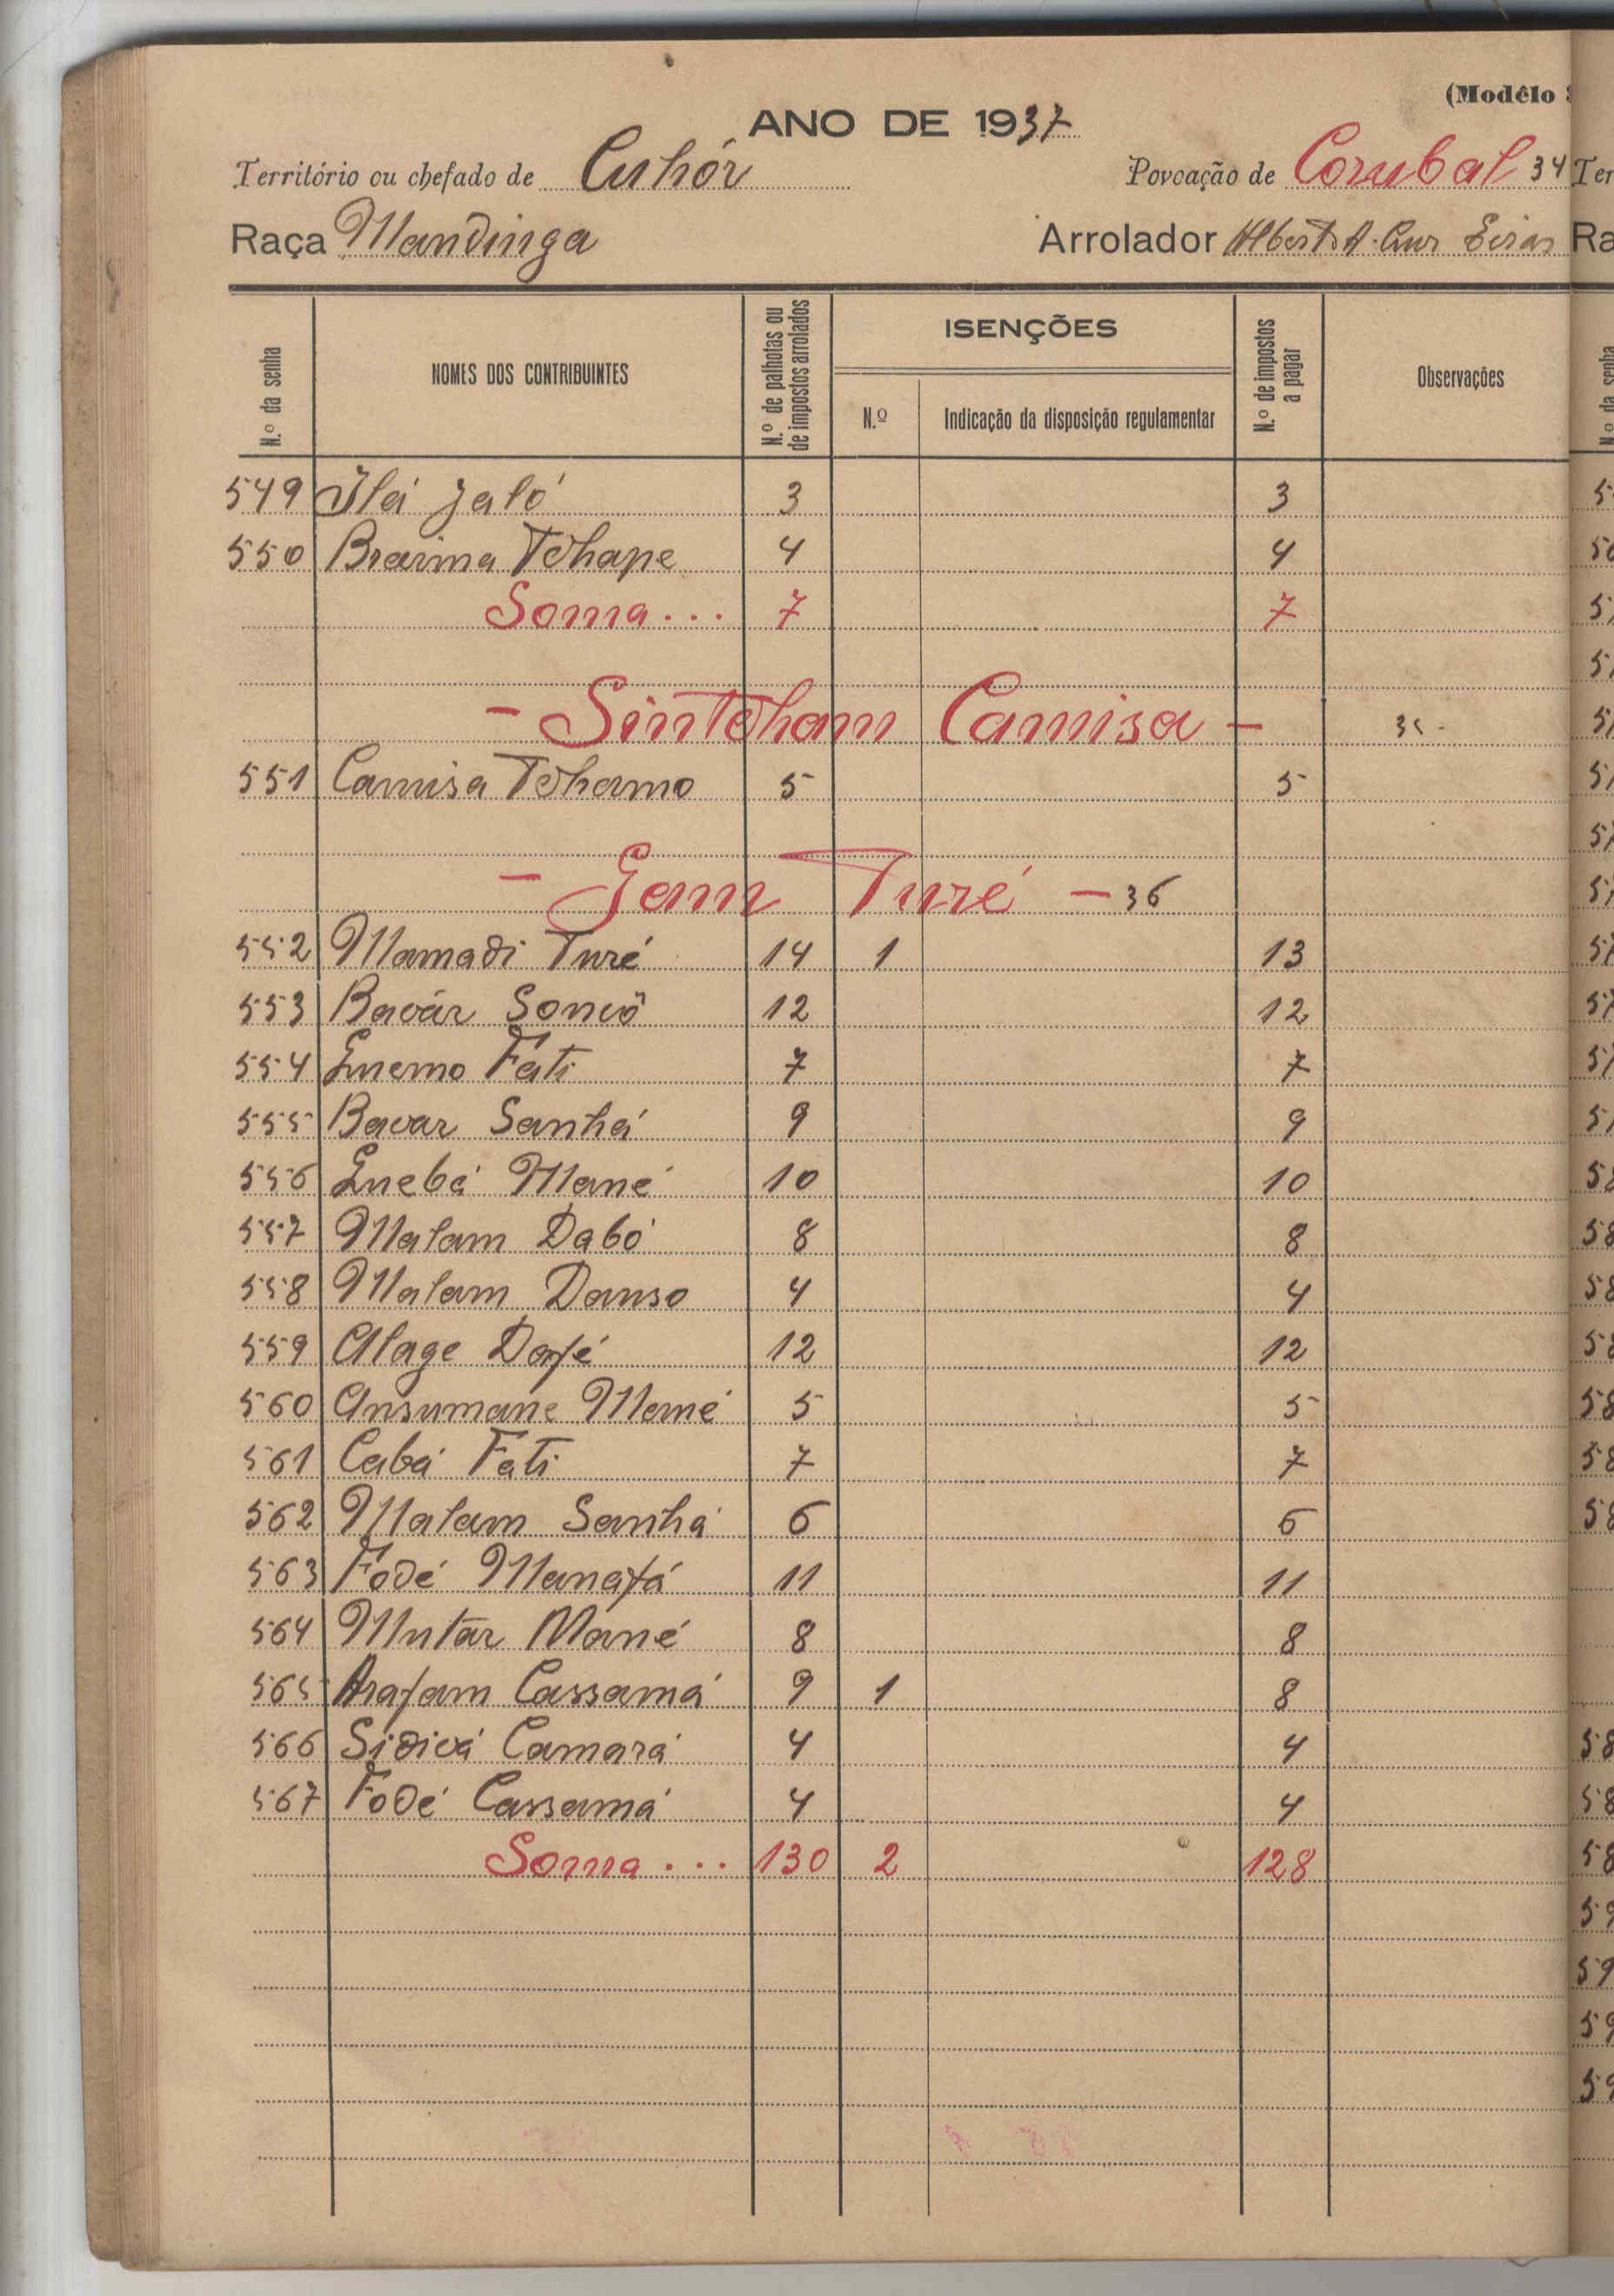 (Modêlo
ANO DE 1937
Território ou chefado de Cuhór Povoação de Corubal 34
Raça Mandinga Arrolador Alberto A.
N.º da senha
NOMES DOS CONTRIBUINTES
N.º de palhotas ou de impostos arrolados
ISENÇÕES
N.º
Indicação da disposição regulamentar
N.º de impostos a pagar
Observações
549 Ilá Jaló 3 3
550 Braima Tchape 4 4
Soma... 7 7
- Sintcham Camisa - 35-
551 Camisa Tchamo 5 5
- Gam Turé - 36
552 Mamadi Turé 14 1 13
553 Bacár Soncó 12 12
554 Quemo Fati 7 7
555 Bacar Sanhá 9 9
556 Quebá Mané 10 10
557 Malam Dabó 8 8
558 Malam Danso 4 4
559 Alage Dafé 12 12
560 Ansumane Mané 5 5
561 Cabá Fati 7 7
562 Malam Sanhá 6 6
563 Fodé Manafá 11 11
564 Mutar Mané 8 8
565 Arafam Cassamá 9 1 8
566 Sidicá Camará 4 4
567 Fodé Cassamá 4 4
Soma... 130 2 128